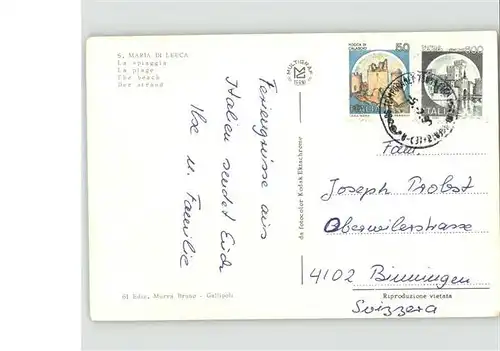 S. MARIA DI LEUCA
La spiaggia
La plage
The beach
Der strand
MULTIGRAF
TERNI
Feriengrüsse aus
Italien sendet Euch
Ilse u. Familie
da fotocolor Kodak Ektachrome
ROCCA DI
CALASCIO
50
ITALIA
ITALIA
Fam.
Joseph Probst
Oberwilerstrasse
4102 Binningen
Svizzera
61 Ediz. Murra Bruno - Gallipoli
Riproduzione vietata